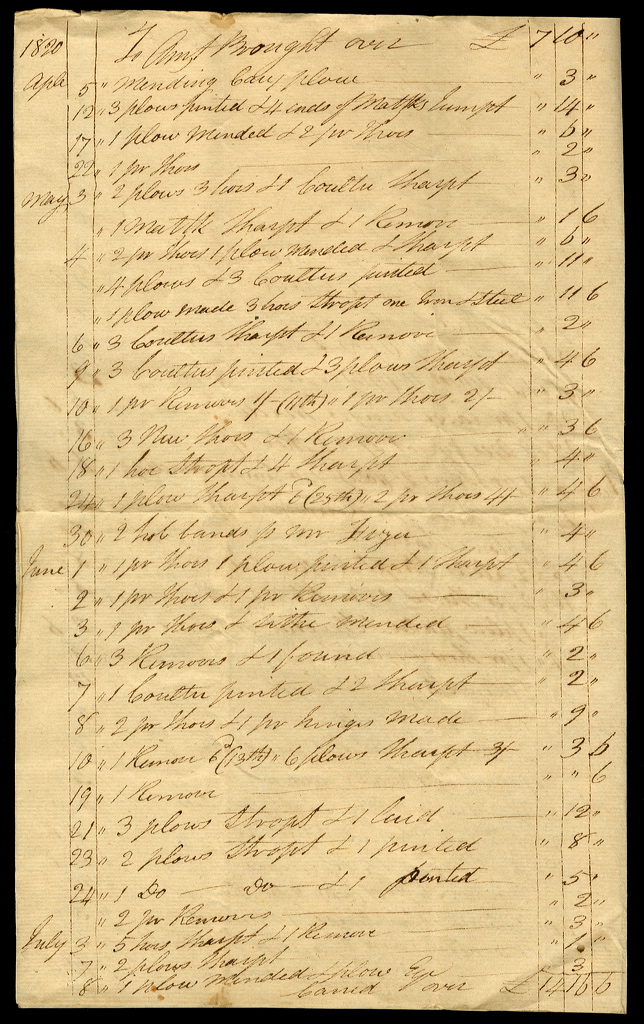 1820 To Amt Brought over £ 7 10 "
Aple 5 " Mending Cary plow " 3 "
12 " 3 plows pinted & 4 ends of Matfks Jumpt " 14 "
17 " 1 plow Mended & 2 pr Shoes " 6 "
22 " 1 pr Shoes " 2 "
May 3 " 2 plows 3 hoes & 1 Coulter Sharpt " 3 "
" 1 Matfk Sharpt & 1 Remove " 1 6
4 " 2 pr Shoes 1 plow mended & Sharpt " 6 "
" 4 plows & 3 Coulters pinted " 11 "
" 1 plow made 3 hoes Stropt one Iron & Steel " 11 6
6 " 3 Coulters Sharpt & 1 Remove " 2 "
9 " 3 Coulters pinted & 3 plows Sharpt " 4 6
10 " 1 pr Removes 1/- (11th) " 1 pr Shoes 2/- " 3 "
16 " 3 New Shoes & 1 Remove " 3 6
18 " 1 hoe Stropt & 4 Sharpt " 4 "
24 " 1 plow Sharpt 6d (25th) " 2 pr Shoes 4/ " 4 6
30 " 2 hob bands pr Mr " 4 "
June 1 " 1 pr Shoes 1 plow pinted & 1 Sharpt " 4 6
2 " 1 pr Shoes & 1 pr Removes " 3 "
3 " 1 pr Shoes & sithe mended " 4 6
6 " 3 Removes & 1 found " 2 "
7 " 1 Coulter pinted & 2 Sharpt " 2 "
8 " 2 pr Shoes & 1 pr hinges made " 9 "
10 " 1 Remove 6d (13th) " 6 plows Sharpt 3/ " 3 6
19 " 1 Remove " " 6
21 " 3 plows Stropt & 1 laid " 12 "
23 " 2 plows Stropt & 1 pinted " 8 "
24 " 1 Do Do & 1 pointed " 5 "
" 2 pr Removes " 2 "
July 3 " 5 hoes Sharpt & 1 Remove " 3 "
7 " 2 plows Sharpt " 1 "
8 " 1 plow Mended & plow " 3
Carred over £ 14 16 6